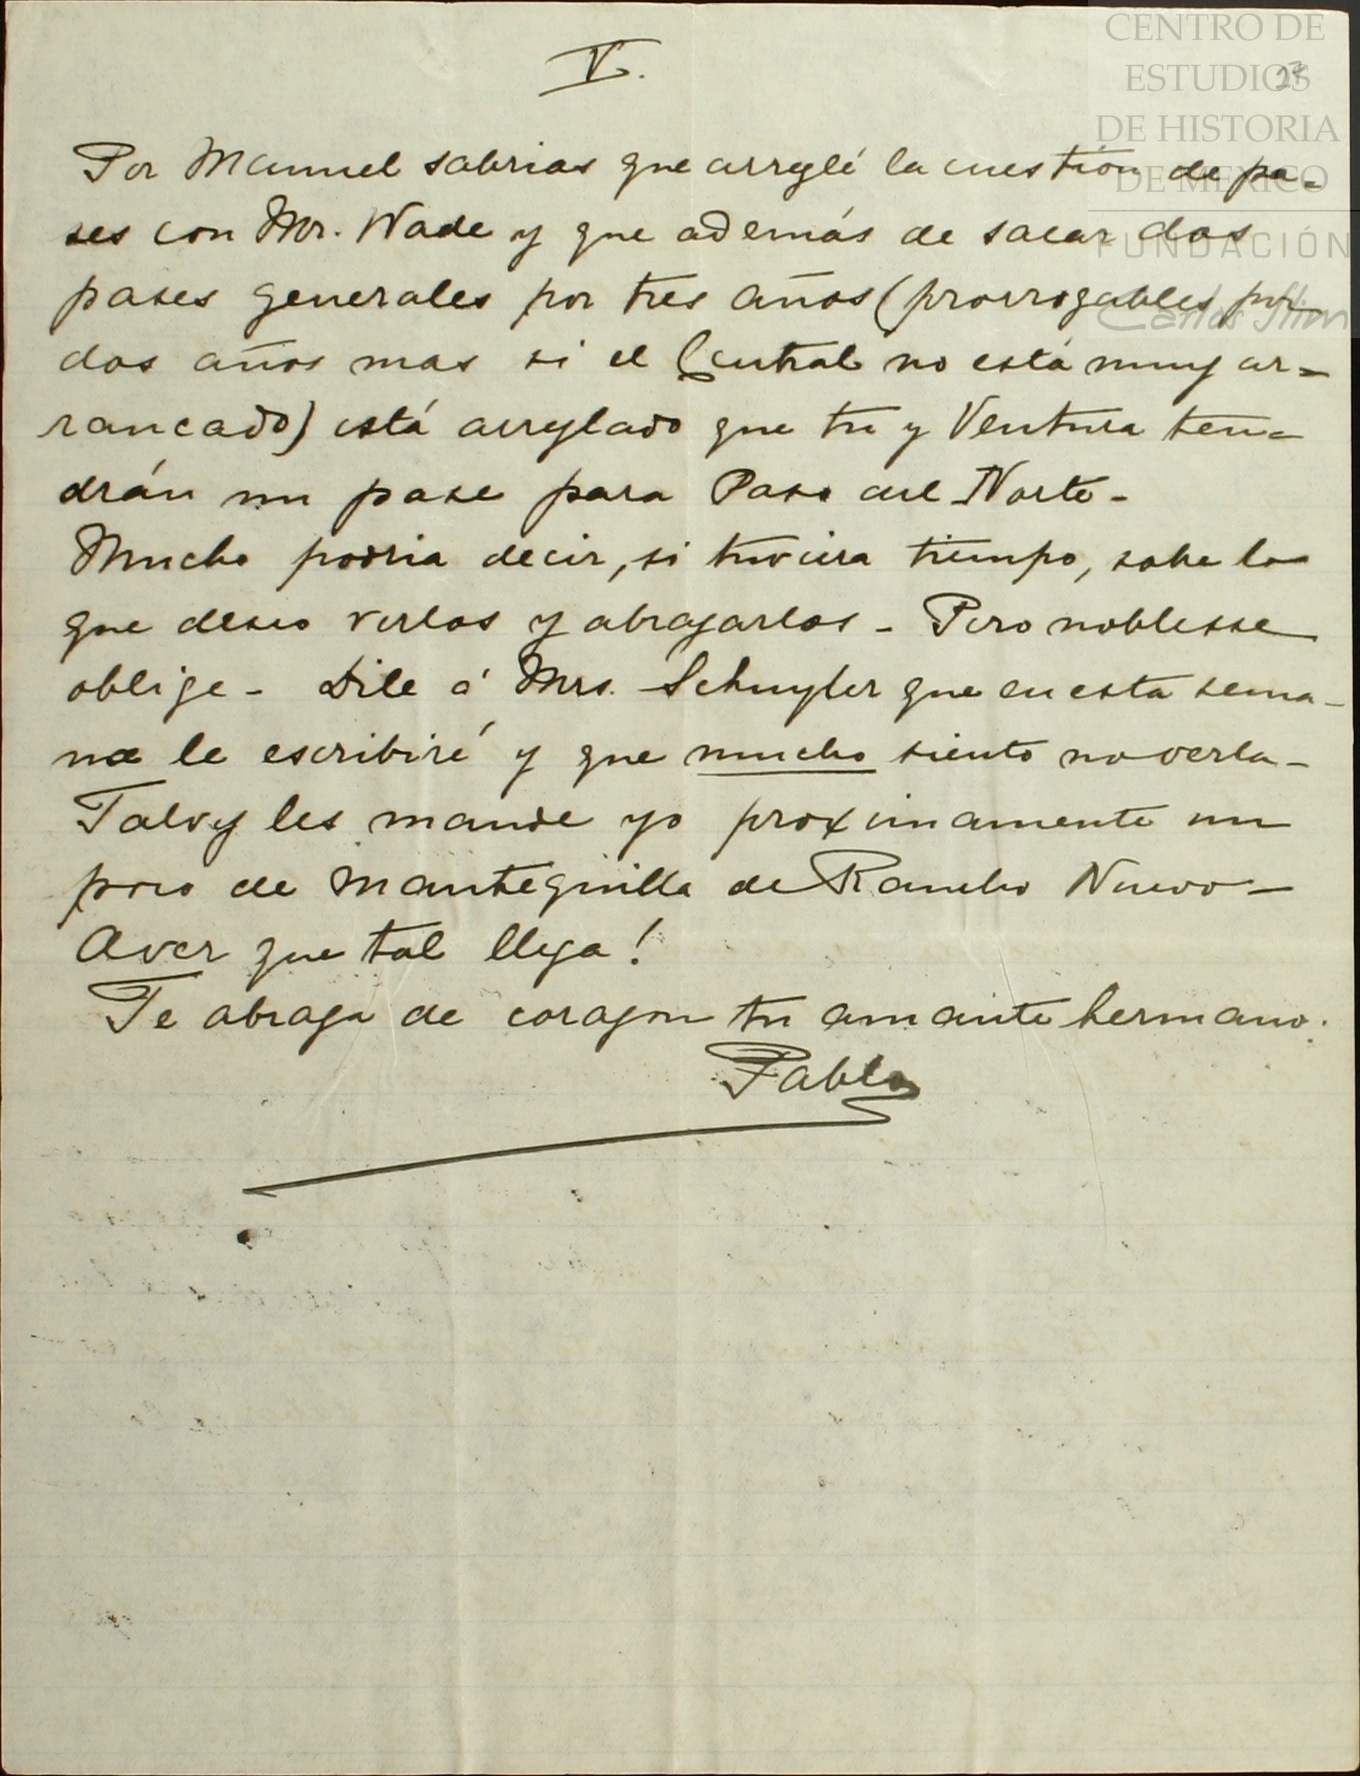 CENTRO DE
ESTUDIOS
DE HISTORIA
DE MÉXICO
FUNDACIÓN
Carlos Slim
V.
Por Manuel sabrias que arreglé la cuestión de pa-
ses con Mr. Wade y que además de sacar dos
pases generales por tres años (prorrogables por
dos años mas si el Central no está muy ar=
rancado) está arreglado que tu y Ventura ten=
drán un pase para Paso del Norte-
Mucho podria decir, si tuviera tiempo, sobre lo
que deseo verlos y abrazarlos - Pero noblesse
oblige - Dile á Mrs. Schuyler que en esta sema-
na le escribiré y que mucho siento no verla-
Talvez les mande yo proximamente un
poco de mantequilla de Rancho Nuevo-
Aver que tal llega!
Te abraza de corazon tu amante hermano.
Pablo